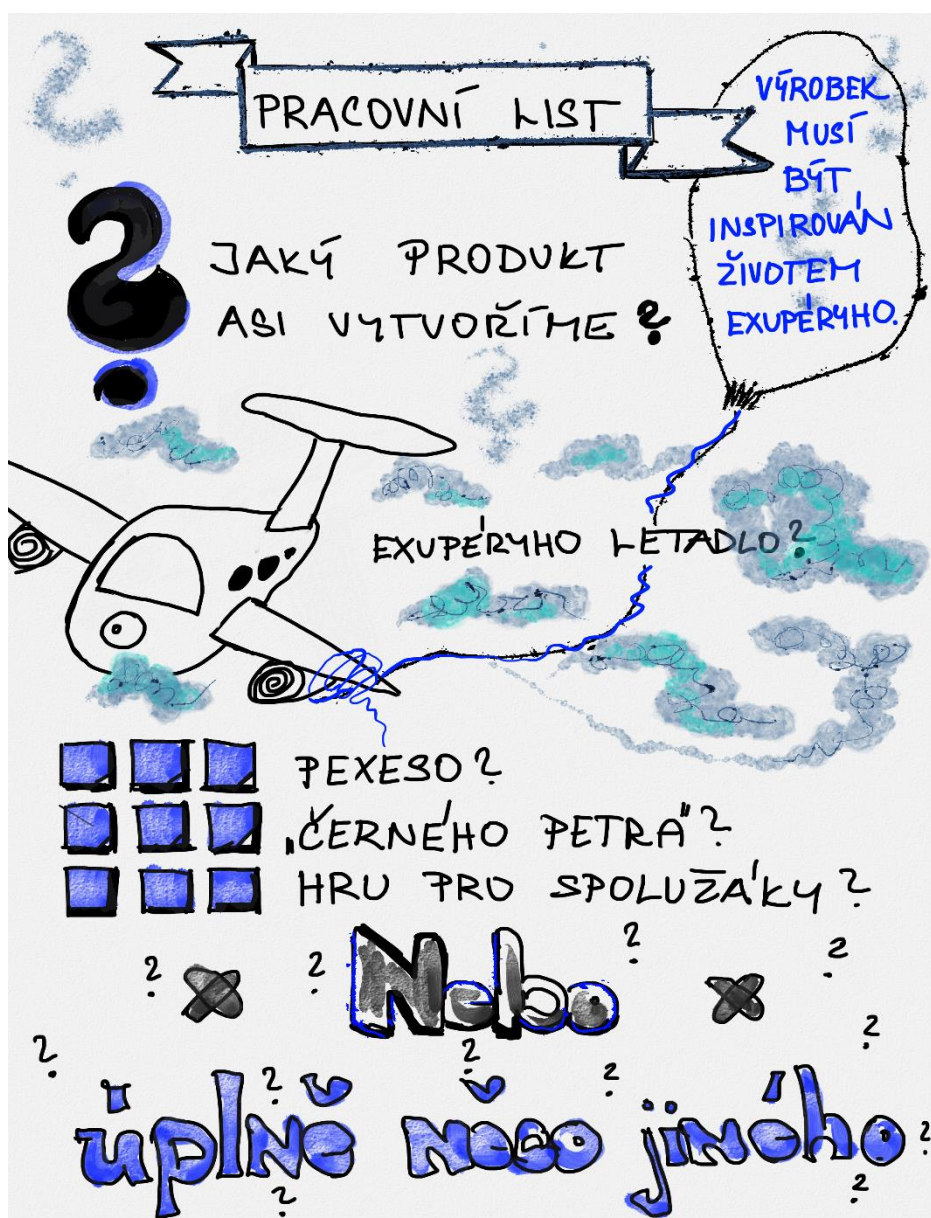 PRACOVNÍ LIST
VÝROBEK
MUSÍ
BÝT
INSPIROVÁN
ŽIVOTEM
EXUPÉRYHO.
? JAKÝ PRODUKT
ASI VYTVOŘÍME?
EXUPÉRYHO LETADLO?
PEXESO?
„ČERNÉHO PETRA"?
HRU PRO SPOLUŽÁKY?
Nebo
úplně něco jiného?